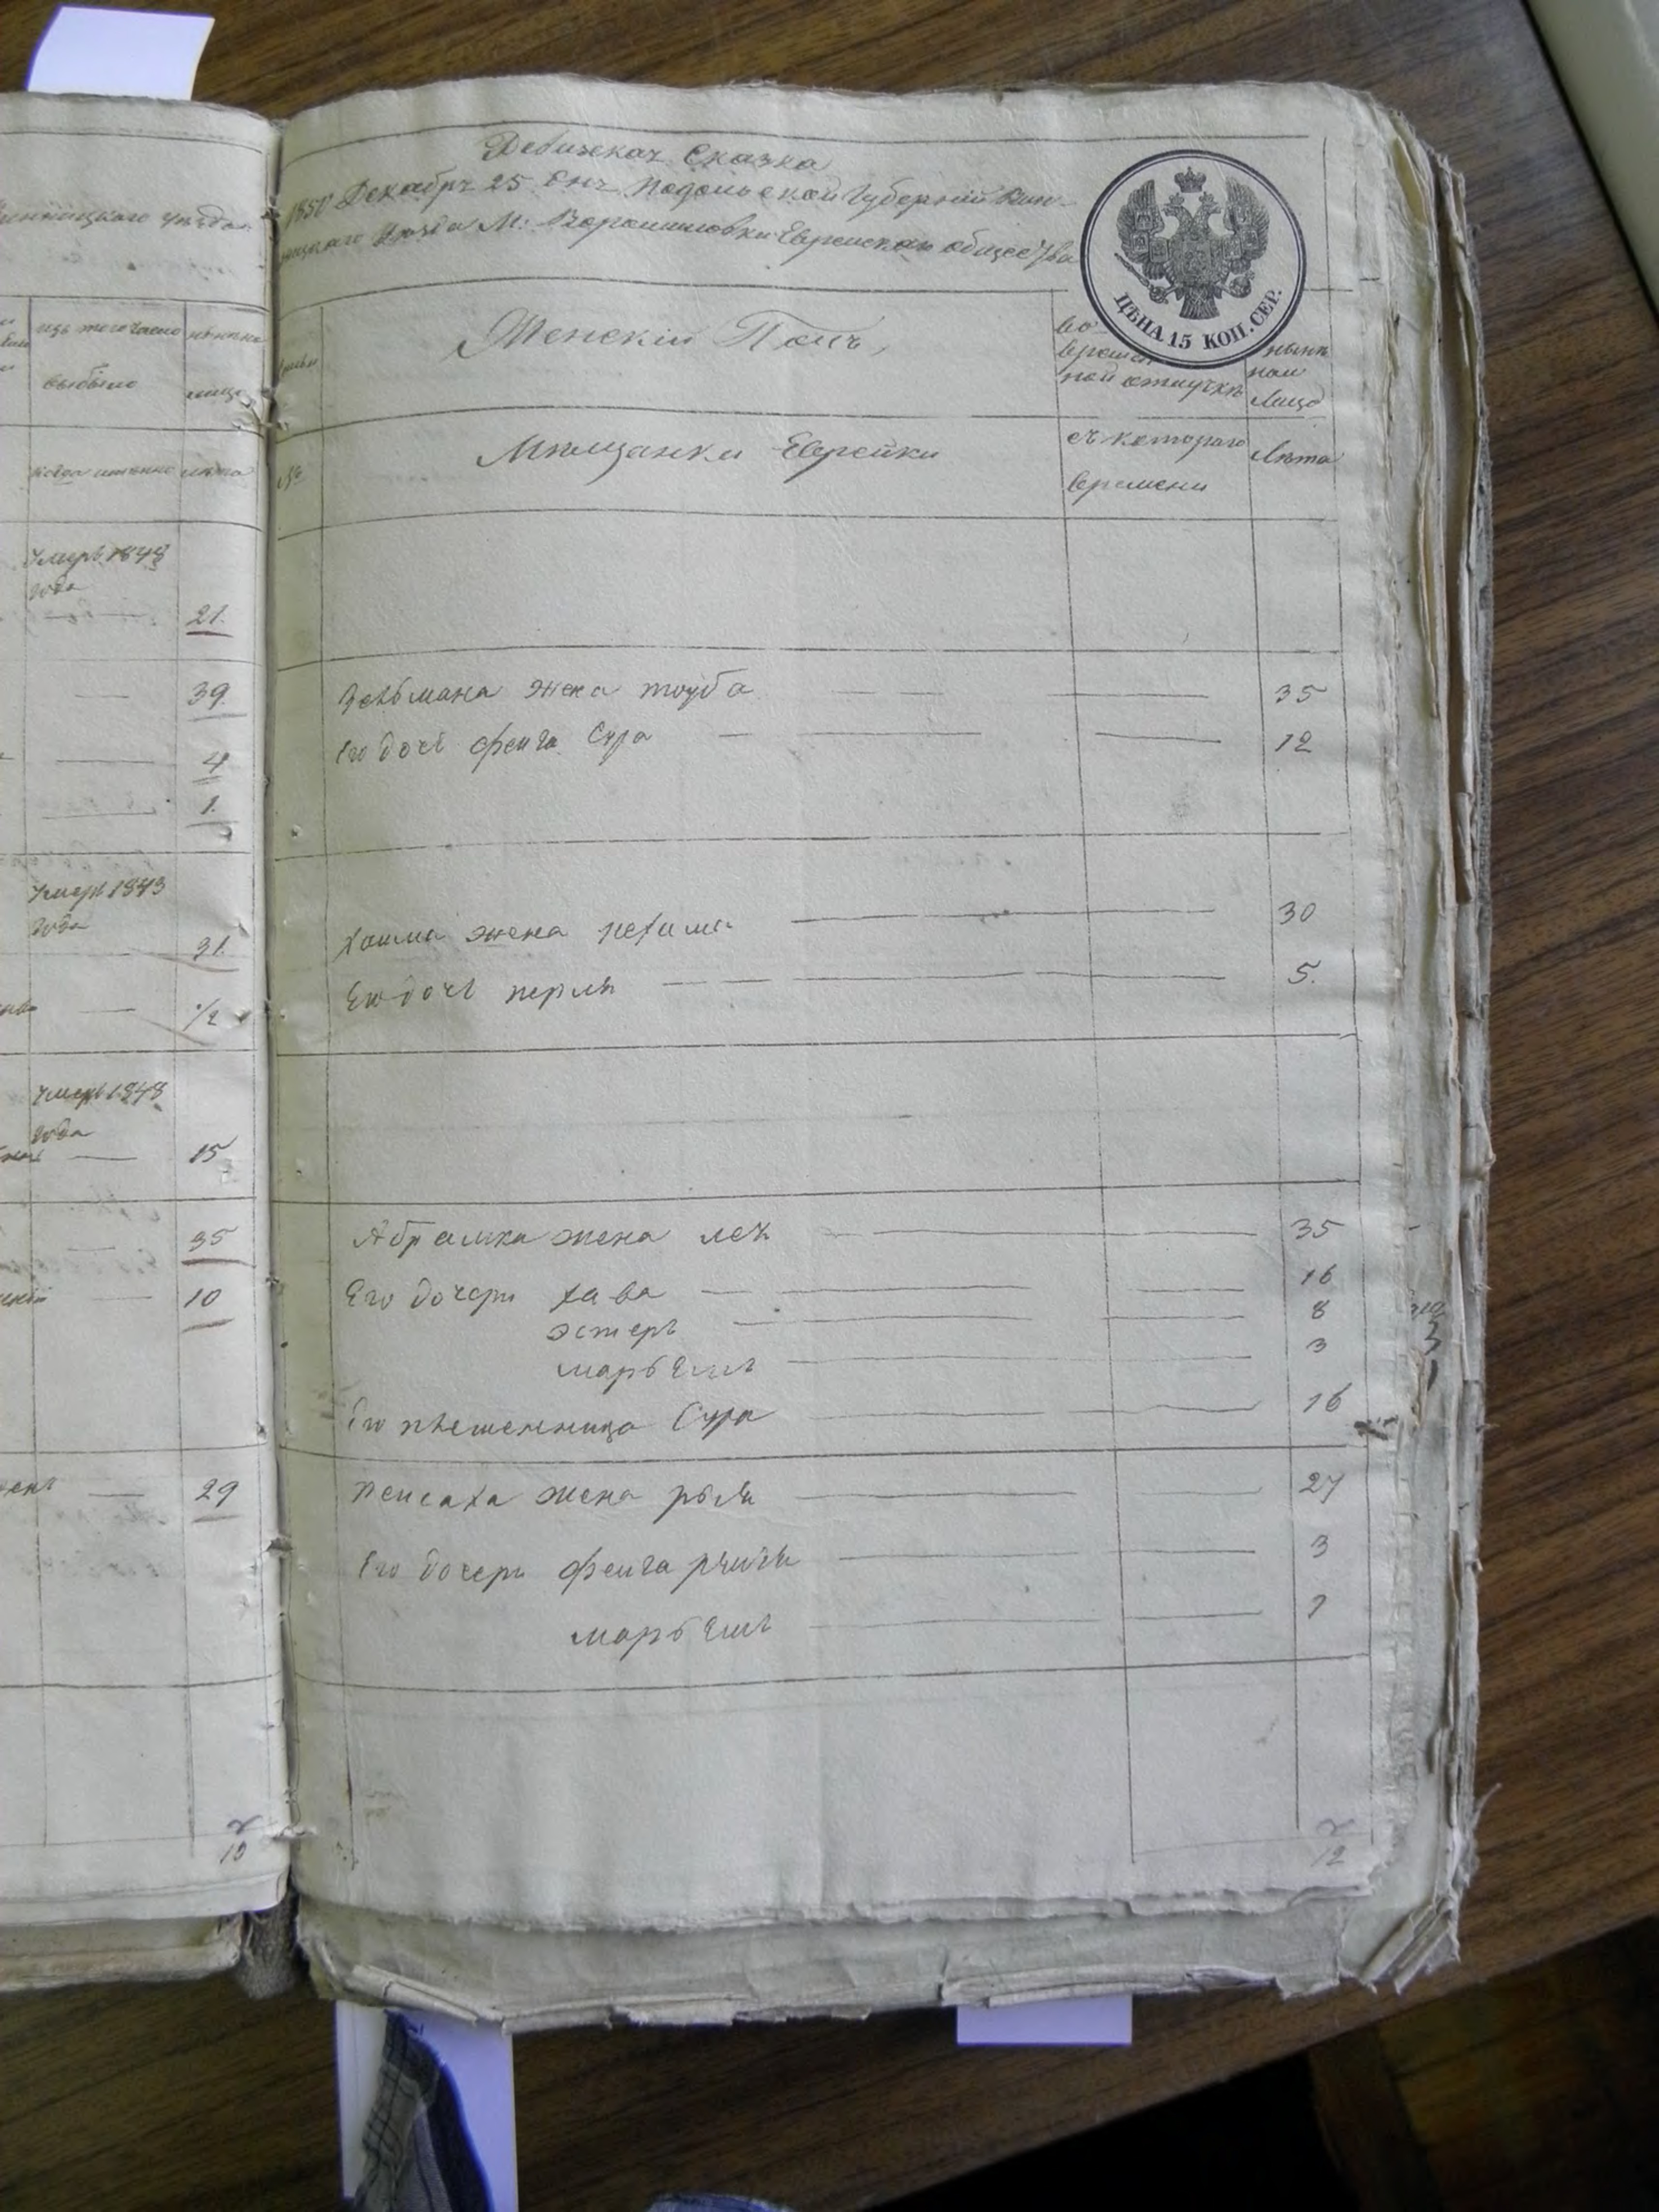 уѣзда
изъ того числа
выбыло
когда именно
лѣта
умеръ 1848
года
21.
39.
4
1.
умеръ 1843
года
31.
1/2
умеръ 1848
года
15
35
10
29
10
Ревижская Сказка
1850 Декабря 25 дня Подольской Губерніи Вин-
ницкаго уѣзда М: Ворошиловки Еврейскаго общества
ЦѢНА 15 КОП. СЕР.
Женскій Полъ,
во
времен
ной отлучкѣ
нынѣ
лицо
№
Мѣщанки Еврейки
съ котораго
времени
Лѣта
Зельмана жена тауба 35
Его дочь фейга Сура 12
хаима жена нехама 30
Его дочь перля 5.
Абрамка жена лея 35
Его дочери хава 16
эстеръ 8
марьемъ 3
Его племенница Сура 16
пейсаха жена 27
Его дочери фейга 3
марьемъ 1
12